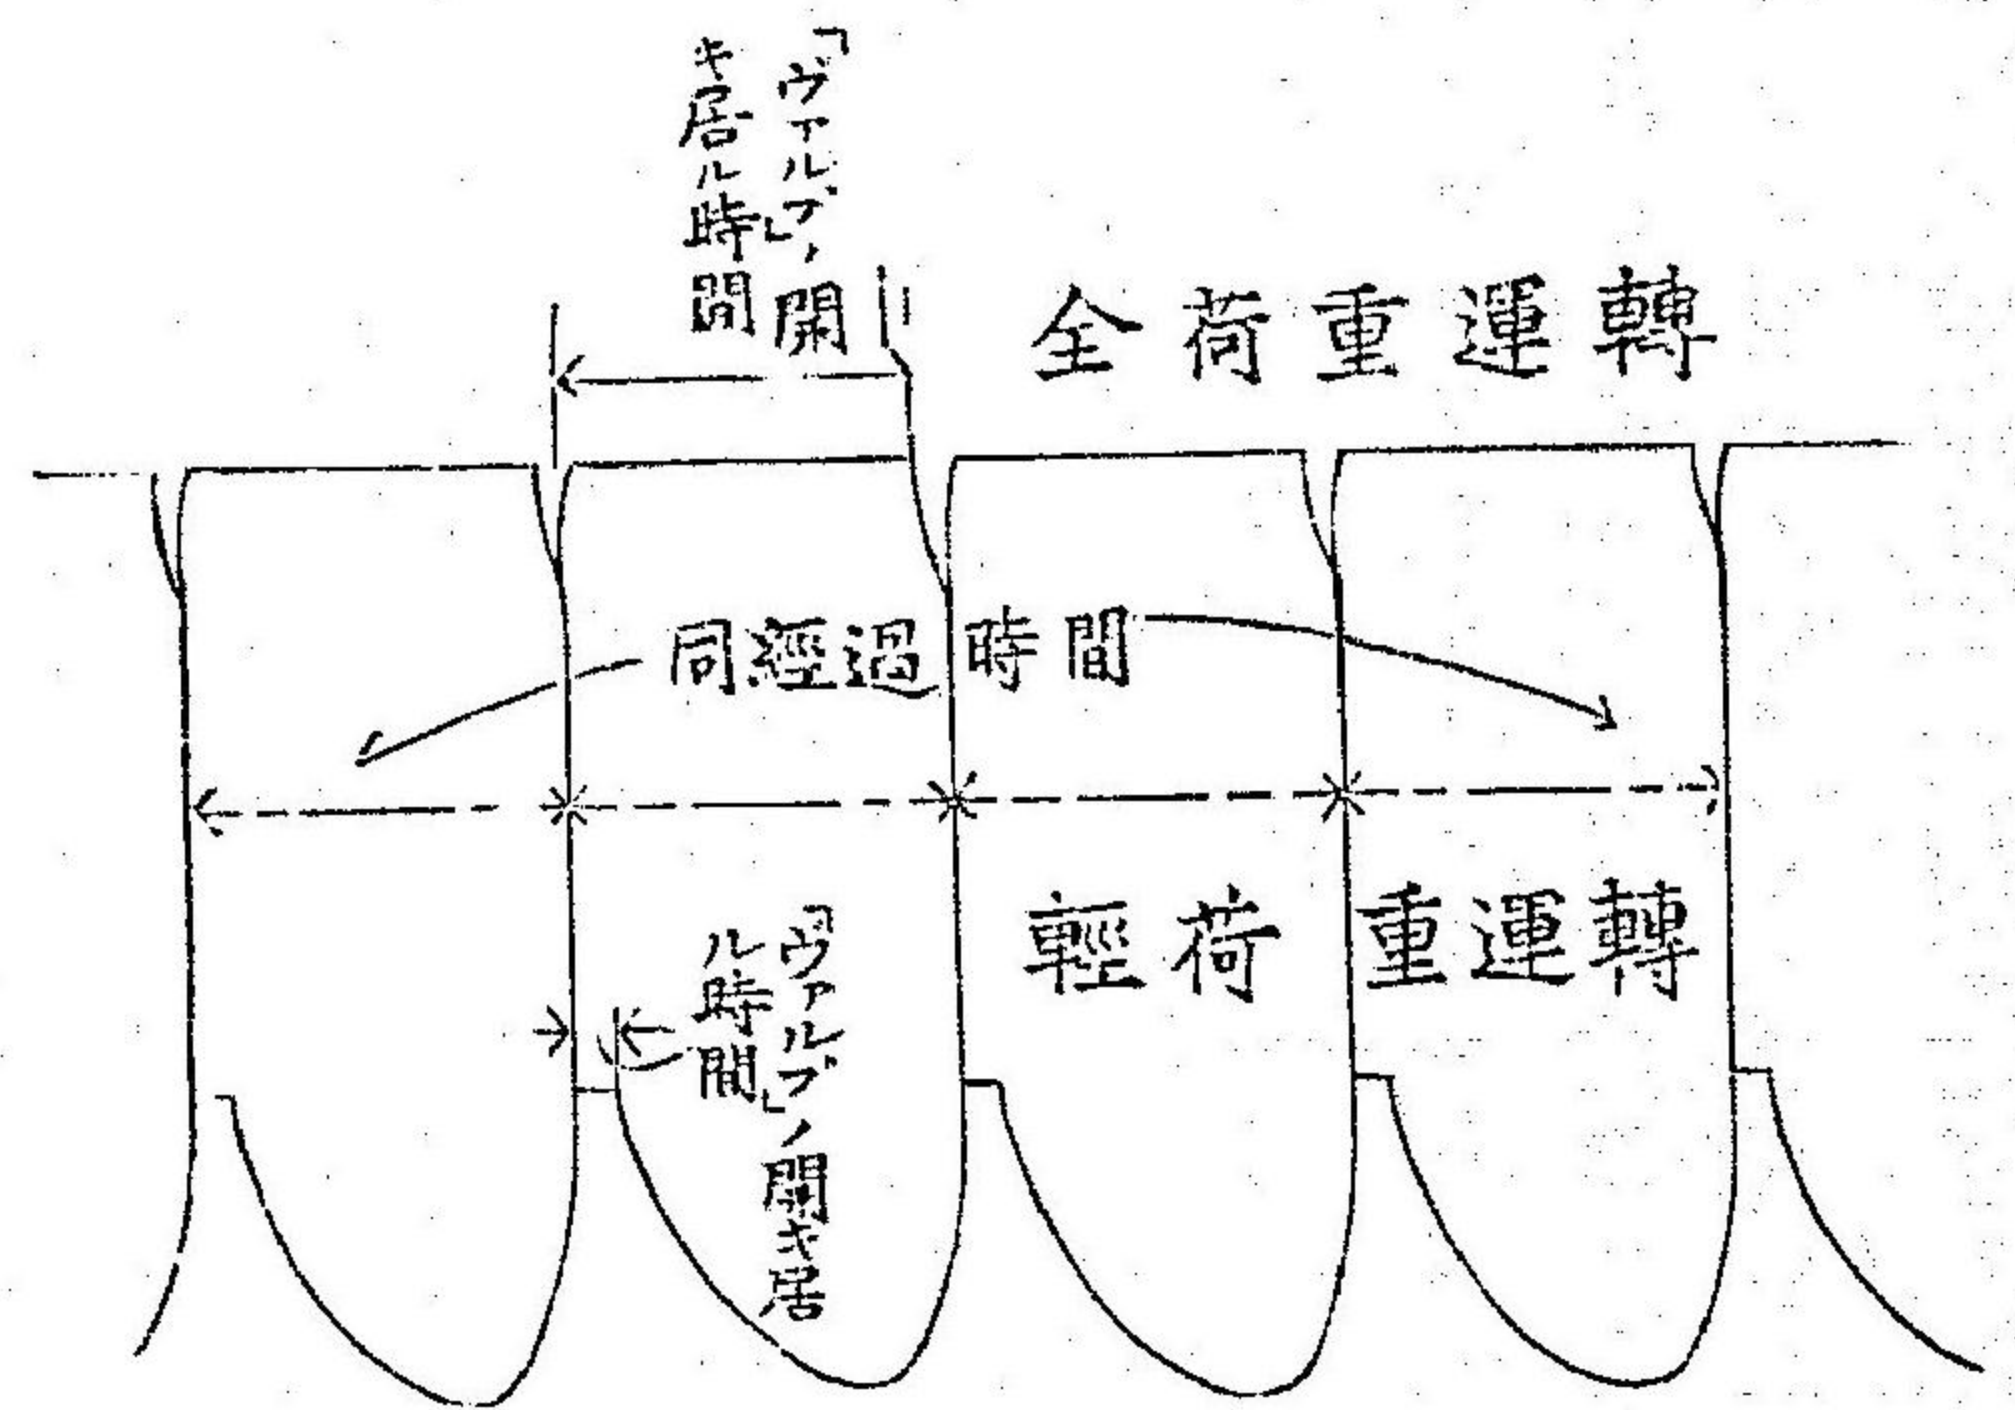 「ヴァルブ」ノ開
キ居ル時間
全荷重運轉
同經過時間
輕荷重運轉
「ヴァルブ」ノ開キ居
ル時間